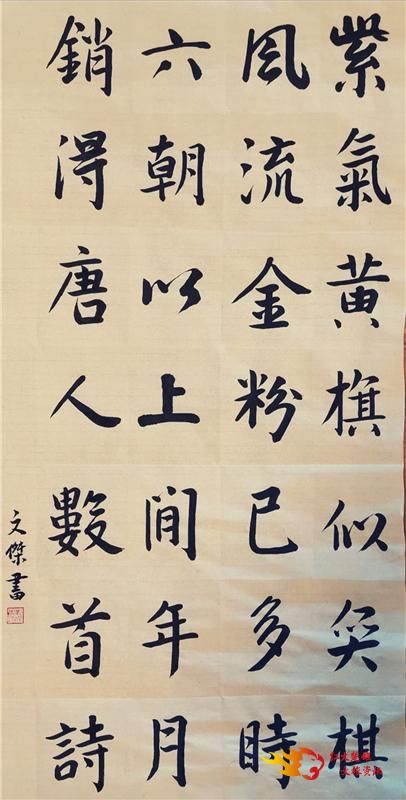 紫氣黃旗似奕棋
風流金粉已多時
六朝以上間年月
銷得唐人數首詩
文傑書